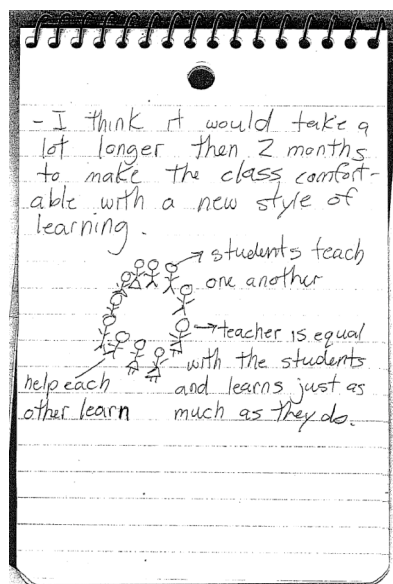 - I think it would take a
lot longer then 2 months
to make the class comfort-
able with a new style of
learning.
students teach
one another
teacher is equal
with the students
and learns just as
much as they do.
help each
other learn